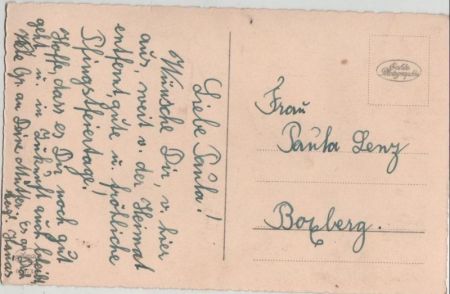 Liebe Paula!
Wünsche Dir, v. hier
aus, weit v. der Heimat
entfernt, gute u. fröhliche
Pfingstfeiertage!
Hoff, dass es Dir noch gut
geht, u. in Zukunft auch bleibt,
Viele Gr. an Deine Mutter, u. an Dich
Echte Photographie
Frau
Paula Lenz
Boxberg.